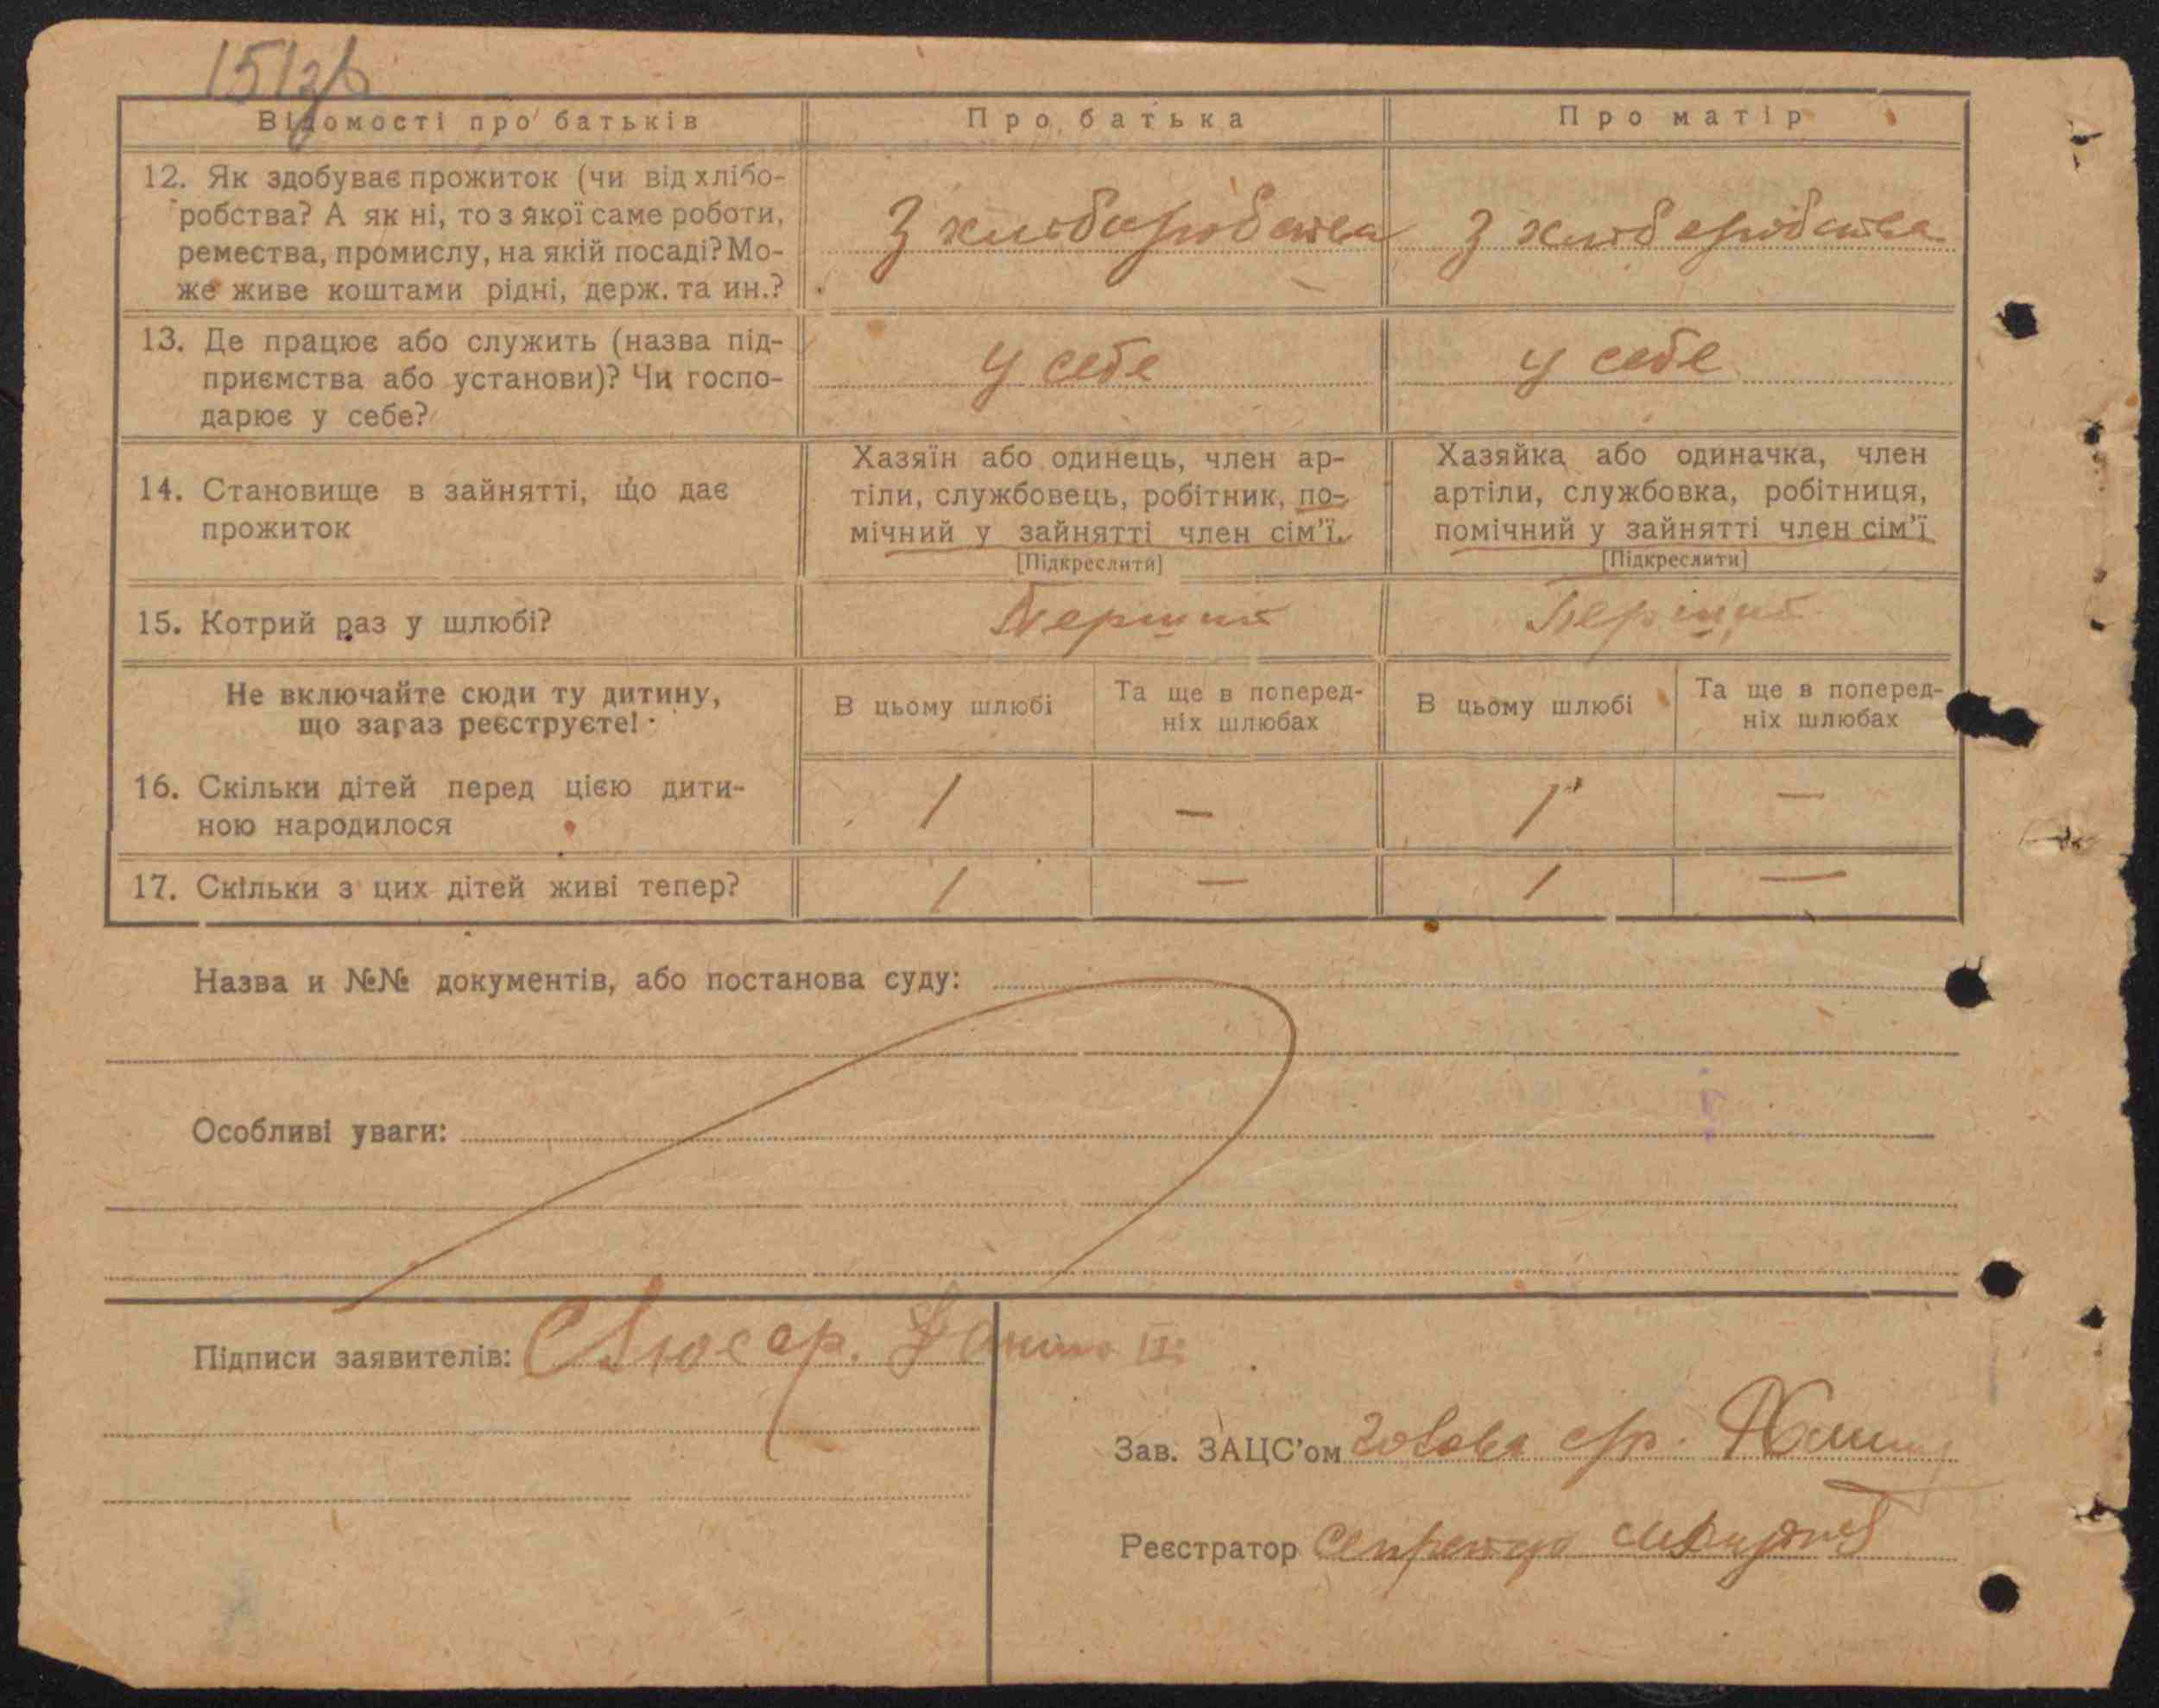 Відомості про батьків
Про батька
Про матір
12. Як здобуває прожиток (чи від хлібо-
робства? А як ні, то з якої саме роботи,
ремества, промислу, на якій посаді? Мо-
же живе коштами рідні, держ. та ин.?
З хліборобства
З хліборобства
13. Де працює або служить (назва під-
приємства або установи)? Чи госпо-
дарює у себе?
у себе
у себе
14. Становище в зайнятті, що дає
прожиток
Хазяїн або одинець, член ар-
тіли, службовець, робітник, по-
мічний у зайнятті член сім'ї.
[Підкреслити]
Хазяйка або одиначка, член
артіли, службовка, робітниця,
помічний у зайнятті член сім'ї
[Підкреслити]
15. Котрий раз у шлюбі?
Перший
Перший
Не включайте сюди ту дитину,
що зараз реєструєте!
В цьому шлюбі
Та ще в поперед-
ніх шлюбах
В цьому шлюбі
Та ще в поперед-
ніх шлюбах
16. Скільки дітей перед цією дити-
ною народилося
1
—
1
—
17. Скільки з цих дітей живі тепер?
1
—
1
—
Назва и №№ документів, або постанова суду:
Особливі уваги:
Підписи заявителів:
Зав. ЗАЦС'ом голова с/р.
Реєстратор Секретар